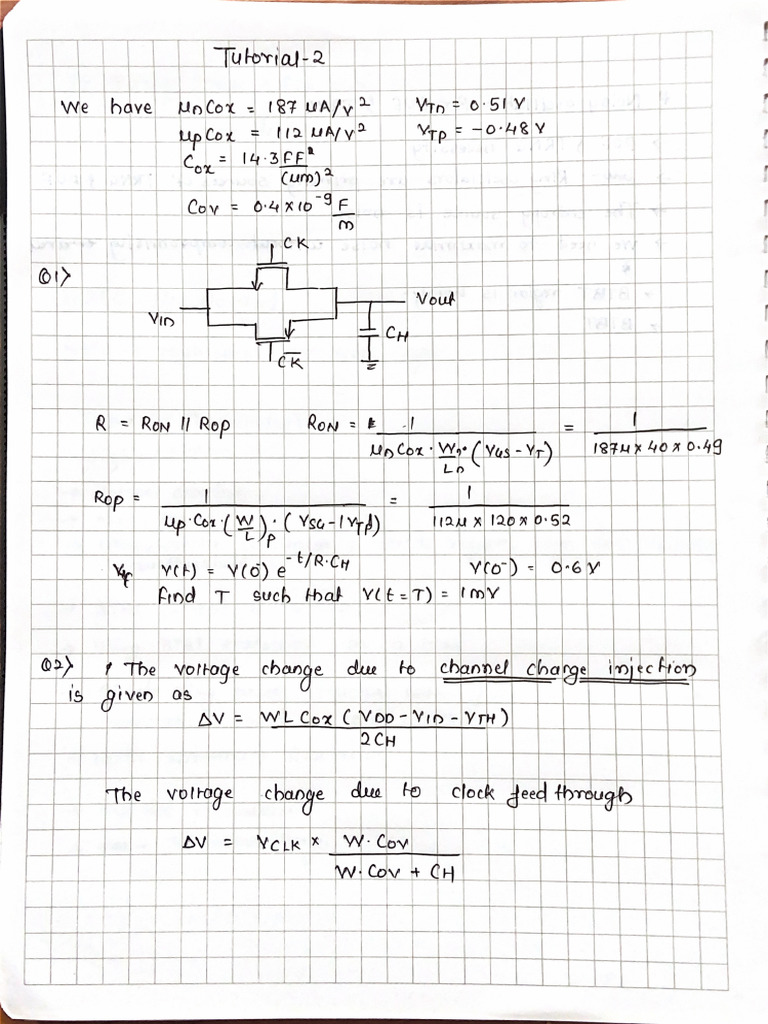 Tutorial-2
We have μnCox = 187 μA/V² VTn = 0.51 V
μpCox = 112 μA/V² VTp = -0.48 V
Cox = 14.3 fF/(μm)²
Cov = 0.4×10⁻⁹ F/m
CK
Q1>
Vin Vout
CH
C̅K̅
R = RON || ROP RON = 1/(μnCox·Wn/Ln·(VGS-VT)) = 1/(187μ×40×0.49)
ROP = 1/(μp·Cox·(W/L)p·(VSG-|VTp|)) = 1/(112μ×120×0.52)
V(t) = V(0⁻) e^(-t/R·CH) V(0⁻) = 0.6 V
Find T such that V(t=T) = 1mV
Q2> The voltage change due to channel charge injection
is given as
ΔV = WLCox(VDD-VIN-VTH)/2CH
The voltage change due to clock feed through
ΔV = VCLK × W·Cov/(W·Cov + CH)